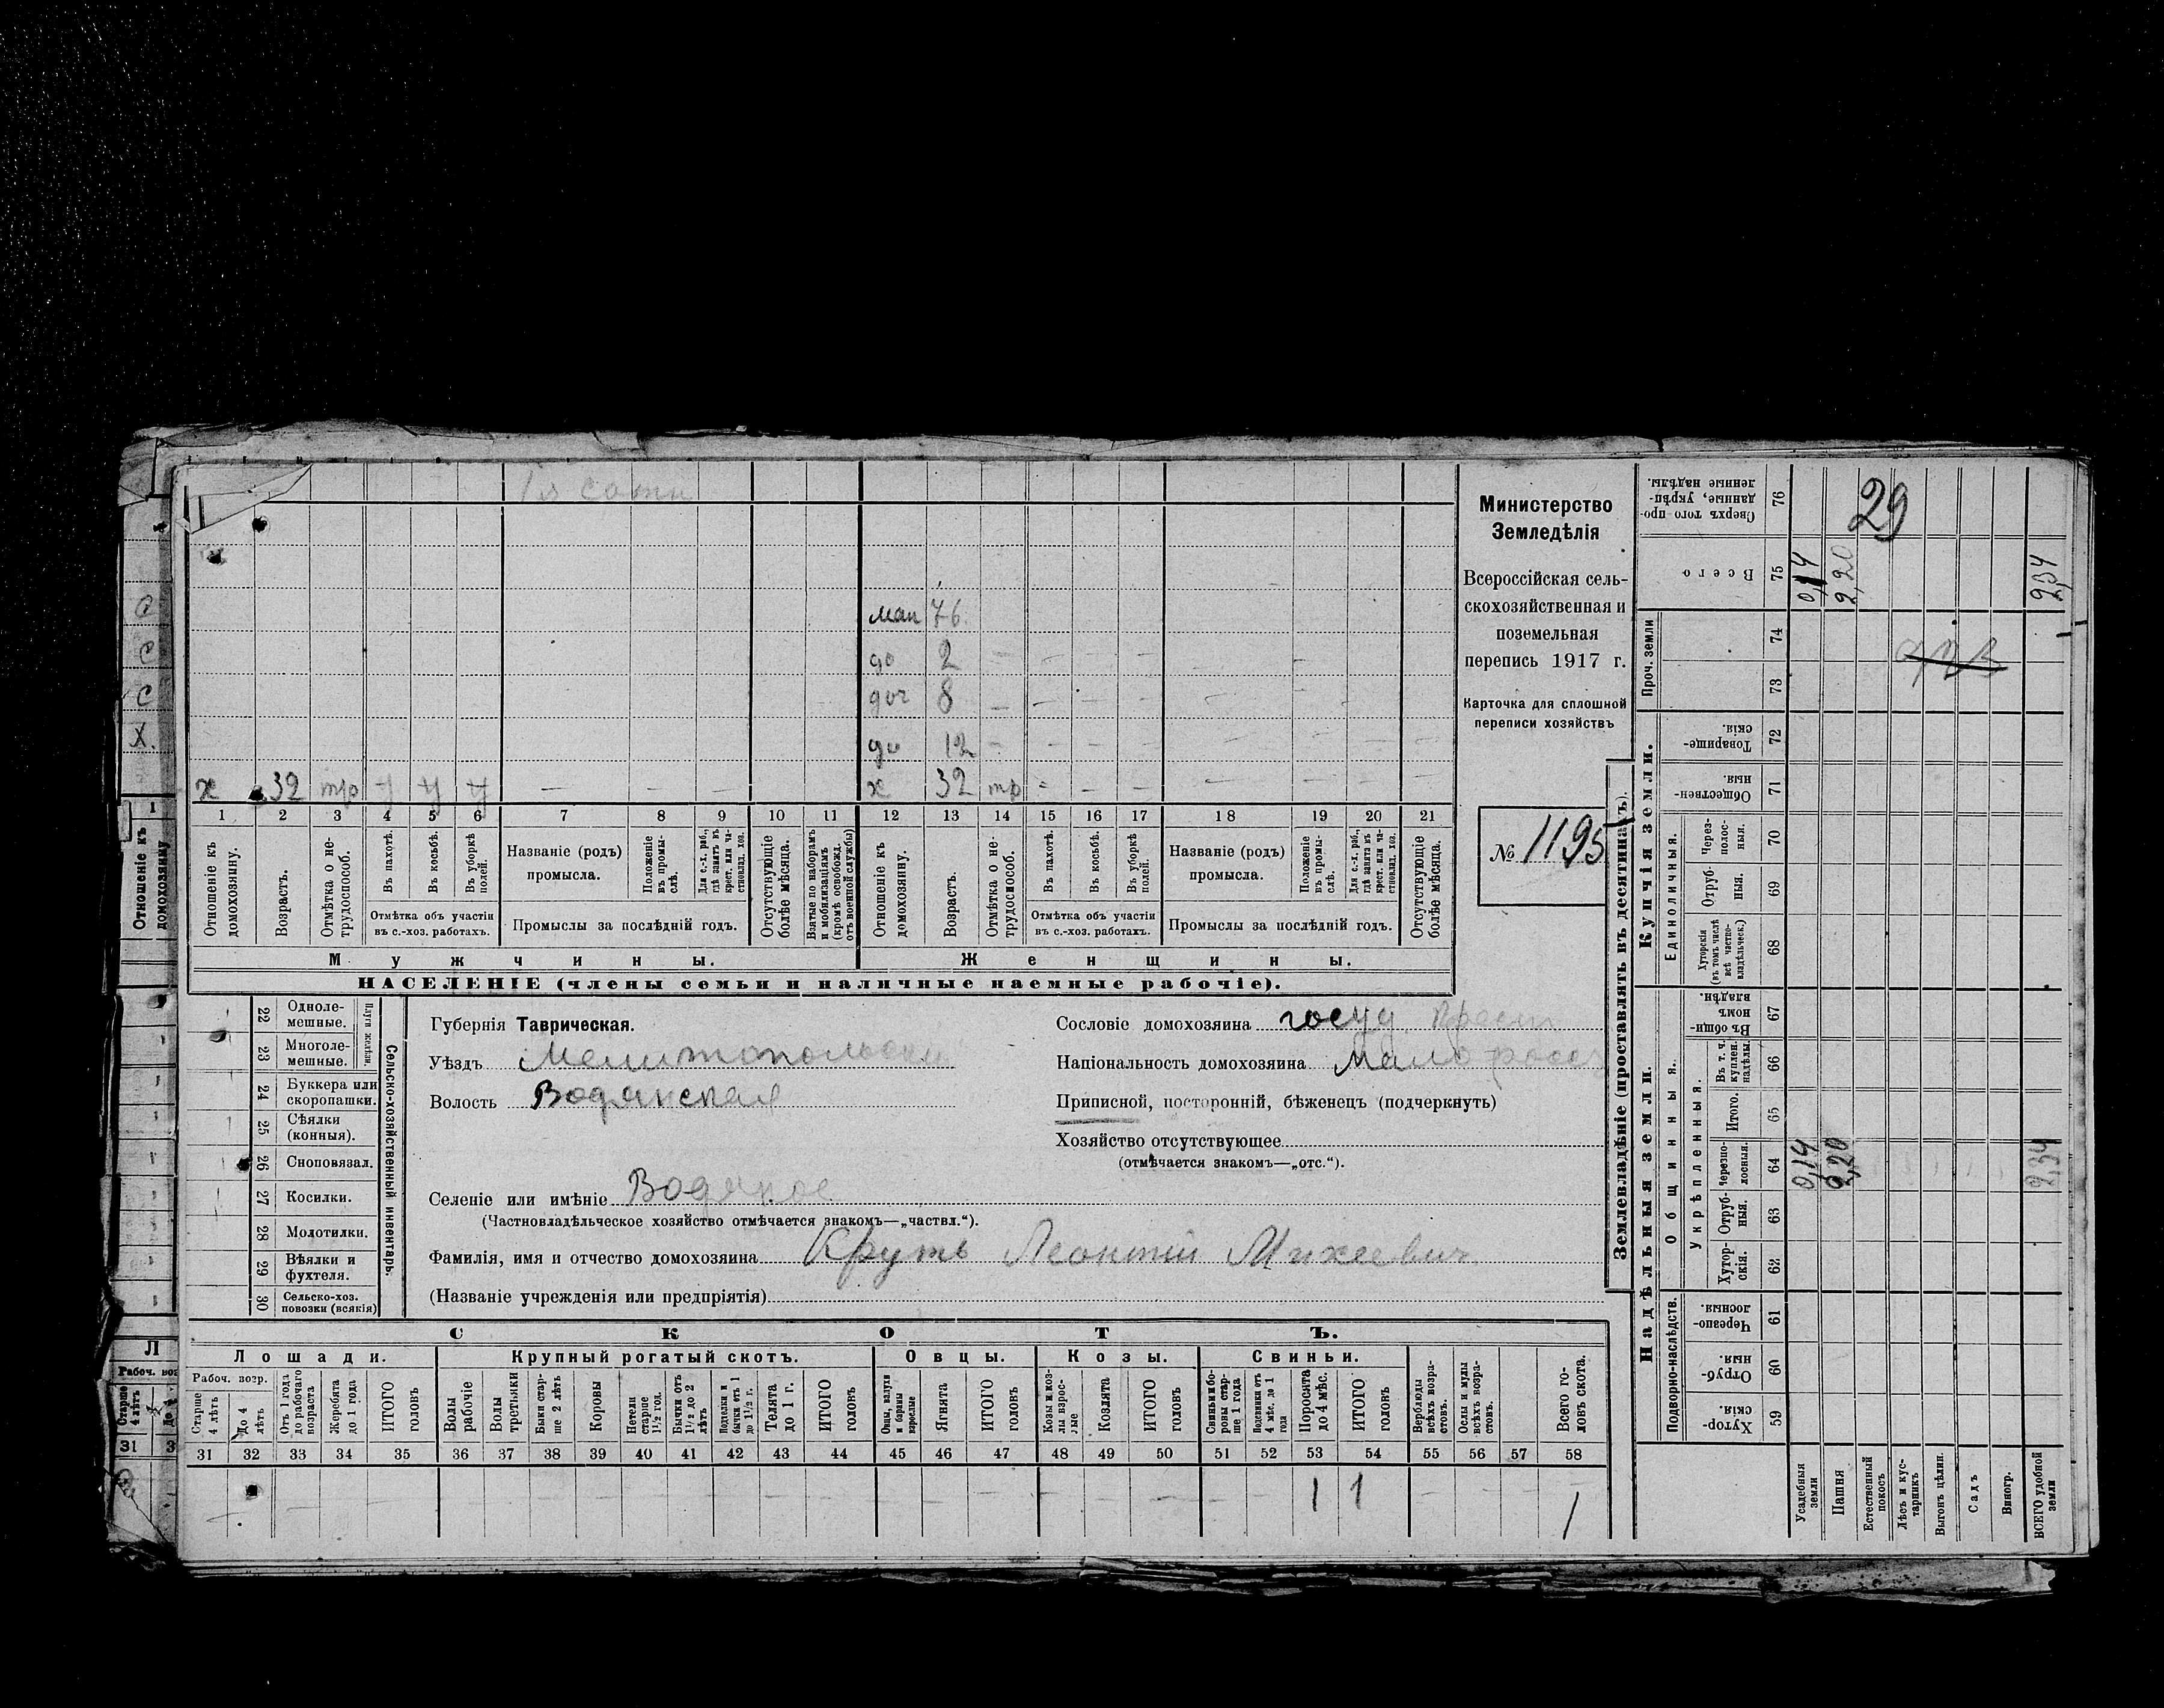 1я сотн
мап 76.
до 2
доч 8
до 12
х 32 тр у у у — — — х 32 тр
1 2 3 4 5 6 7 8 9 10 11 12 13 14 15 16 17 18 19 20 21
Отношеніе къ домохозяину.
Возрастъ.
Отмѣтка о не-трудоспособ.
Въ пахотѣ.
Въ косьбѣ.
Въ уборкѣ полей.
Отмѣтка объ участіи
въ с.-хоз. работахъ.
Названіе (родъ)
промысла.
Положеніе въ промы-слѣ.
Для с.-х. раб., гдѣ занятъ въ крест. или ча-стновлад. хоз.
Промыслы за послѣдній годъ.
Отсутствующіе болѣе мѣсяца.
Взятые по наборамъ и мобилизаціямъ (кромѣ освобожд. отъ военной службы)
Отношеніе къ домохозяину.
Возрастъ.
Отмѣтка о не-трудоспособ.
Въ пахотѣ.
Въ косьбѣ.
Въ уборкѣ полей.
Отмѣтка объ участіи
въ с.-хоз. работахъ.
Названіе (родъ)
промысла.
Положеніе въ промы-слѣ.
Для с.-х. раб., гдѣ занята въ крест. или ча-стновлад. хоз.
Промыслы за послѣдній годъ.
Отсутствующіе болѣе мѣсяца.
Мужчины.
Женщины.
НАСЕЛЕНІЕ (члены семьи и наличные наемные рабочіе).
Министерство
Земледѣлія
Всероссійская сель-
скохозяйственная и
поземельная
перепись 1917 г.
Карточка для сплошной
переписи хозяйствъ
№ 1195
22 Одноле-мешные.
23 Многоле-мешные.
Плуги желѣзн.
24 Буккера или скоропашки.
25 Сѣялки (конныя).
26 Сноповязал.
27 Косилки.
28 Молотилки.
29 Вѣялки и фухтеля.
30 Сельско-хоз. повозки (всякія)
Сельско-хозяйственный инвентарь.
Губернія Таврическая.
Уѣздъ Мелитопольский
Волость Водянская
Селеніе или имѣніе Водяное
(Частновладѣльческое хозяйство отмѣчается знакомъ—„частвл.“).
Фамилія, имя и отчество домохозяина Круть Леонтій Михеевич
(Названіе учрежденія или предпріятія)
Сословіе домохозяина госуд. крест
Національность домохозяина малоросс
Приписной, посторонній, бѣженецъ (подчеркнуть)
Хозяйство отсутствующее
(отмѣчается знакомъ—„отс.“).
СКОТЪ.
Лошади. Крупный рогатый скотъ. Овцы. Козы. Свиньи.
Рабоч. возр.
Старше 4 лѣтъ
До 4 лѣтъ
Отъ 1 года до рабочаго возраста
Жеребята до 1 года
ИТОГО головъ
Волы рабочіе
Волы третьяки
Быки стар-ше 2 лѣтъ
Коровы
Нетели старше 1½ год.
Бычки отъ 1½ до 2 лѣтъ
Подтелки и бычки отъ 1 до 1½ г.
Телята до 1 г.
ИТОГО головъ
Овцы, валухи и бараны взрослые
Ягнята
ИТОГО головъ
Козы и коз-лы взрос-лые
Козлята
ИТОГО головъ
Свиньи и бо-ровы стар-ше 1 года
Подсвинки отъ 4 мѣс. до 1 года
Поросята до 4 мѣс.
ИТОГО головъ
Верблюды всѣхъ возра-стовъ.
Ослы и мулы всѣхъ возра-стовъ.
Всего го-ловъ скота.
31 32 33 34 35 36 37 38 39 40 41 42 43 44 45 46 47 48 49 50 51 52 53 54 55 56 57 58
1 1 1
Землевладѣніе (проставлять въ десятинахъ).
Надѣльныя земли. Купчія земли.
Подворно-наслѣдств.
Общинныя.
Укрѣпленныя.
Единоличныя.
Проч. земли
Хутор-скія. 59
Отруб-ныя. 60
Черезпо-лосныя. 61
Хутор-скія. 62
Отруб-ныя. 63
Черезпо-лосныя. 64
Итого. 65
Въ т. ч. куплен. надѣлы. 66
Въ общи-номъ владѣн. 67
Хуторскія (въ томъ числѣ всѣ частно-владѣльческ.) 68
Отруб-ныя. 69
Через-полос-ныя. 70
Обществен-ныя. 71
Товарище-скія. 72
73
74
Всего 75
Сверхъ того про-данные, укрѣп-ленные надѣлы. 76
Усадебныя земли 0,14 0,14
Пашня 2,20 2,20
Естественный покосъ
Лѣсъ и кус-тарникъ
Выгонъ цѣлин.
Садъ
Виногр.
ВСЕГО удобной земли 2,34 2,34
29
Отношеніе къ домохозяину
1
С
С
С
Х.
Л
Рабоч. воз
Старше 4 лѣтъ
31